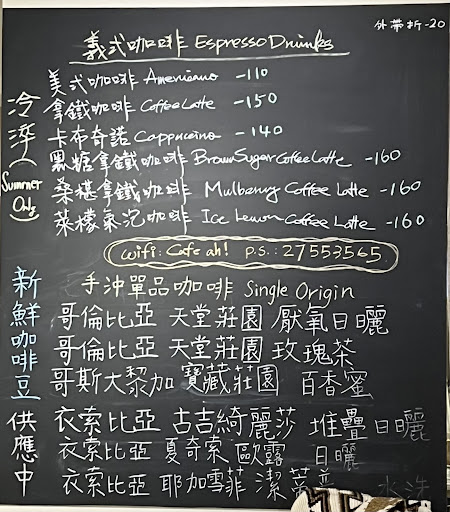 外帶折-20
義式咖啡 Espresso Drinks
美式咖啡 Americano -110
拿鐵咖啡 Coffee Latte -150
卡布奇諾 Cappuccino -140
黑糖拿鐵咖啡 Brown Sugar Coffee Latte -160
桑椹拿鐵咖啡 Mulberry Coffee Latte -160
萊檬氣泡咖啡 Ice Lemon Coffee Latte -160
冷淬 (Summer Only)
wifi: Cafe ah! p.s.: 27553565
手沖單品咖啡 Single Origin
哥倫比亞 天堂莊園 厭氧日曬
哥倫比亞 天堂莊園 玫瑰茶
哥斯大黎加 寶藏莊園 百香蜜
衣索比亞 古吉綺麗莎 堆疊日曬
衣索比亞 夏奇索 歐露 日曬
衣索比亞 耶加雪菲 潔蒂普 水洗
新鮮咖啡豆供應中